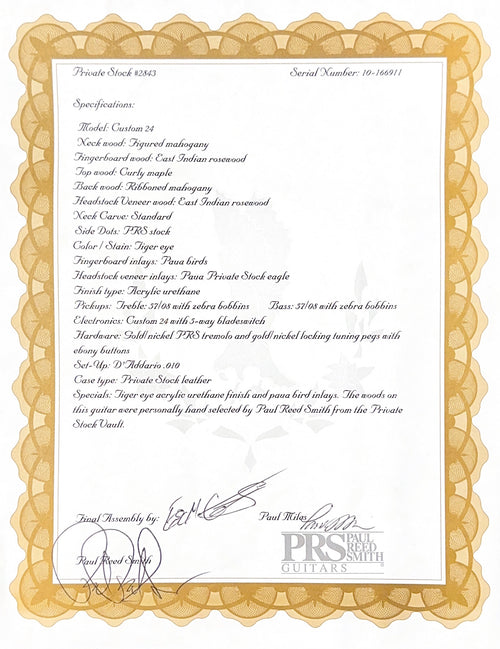 Private Stock #2843 Serial Number: 10-166911
Specifications:
Model: Custom 24
Neck wood: Figured mahogany
Fingerboard wood: East Indian rosewood
Top wood: Curly maple
Back wood: Ribboned mahogany
Headstock Veneer wood: East Indian rosewood
Neck Carve: Standard
Side Dots: PRS stock
Color / Stain: Tiger eye
Fingerboard inlays: Paua birds
Headstock veneer inlays: Paua Private Stock eagle
Finish type: Acrylic urethane
Pickups: Treble: 57/08 with zebra bobbins Bass: 57/08 with zebra bobbins
Electronics: Custom 24 with 5-way bladeswitch
Hardware: Gold/nickel PRS tremolo and gold/nickel locking tuning pegs with
ebony buttons
Set-Up: D'Addario .010
Case type: Private Stock leather
Specials: Tiger eye acrylic urethane finish and paua bird inlays. The woods on
this guitar were personally hand selected by Paul Reed Smith from the Private
Stock Vault.
Final Assembly by: Paul Miles
Paul Reed Smith
PRS PAUL REED SMITH
GUITARS